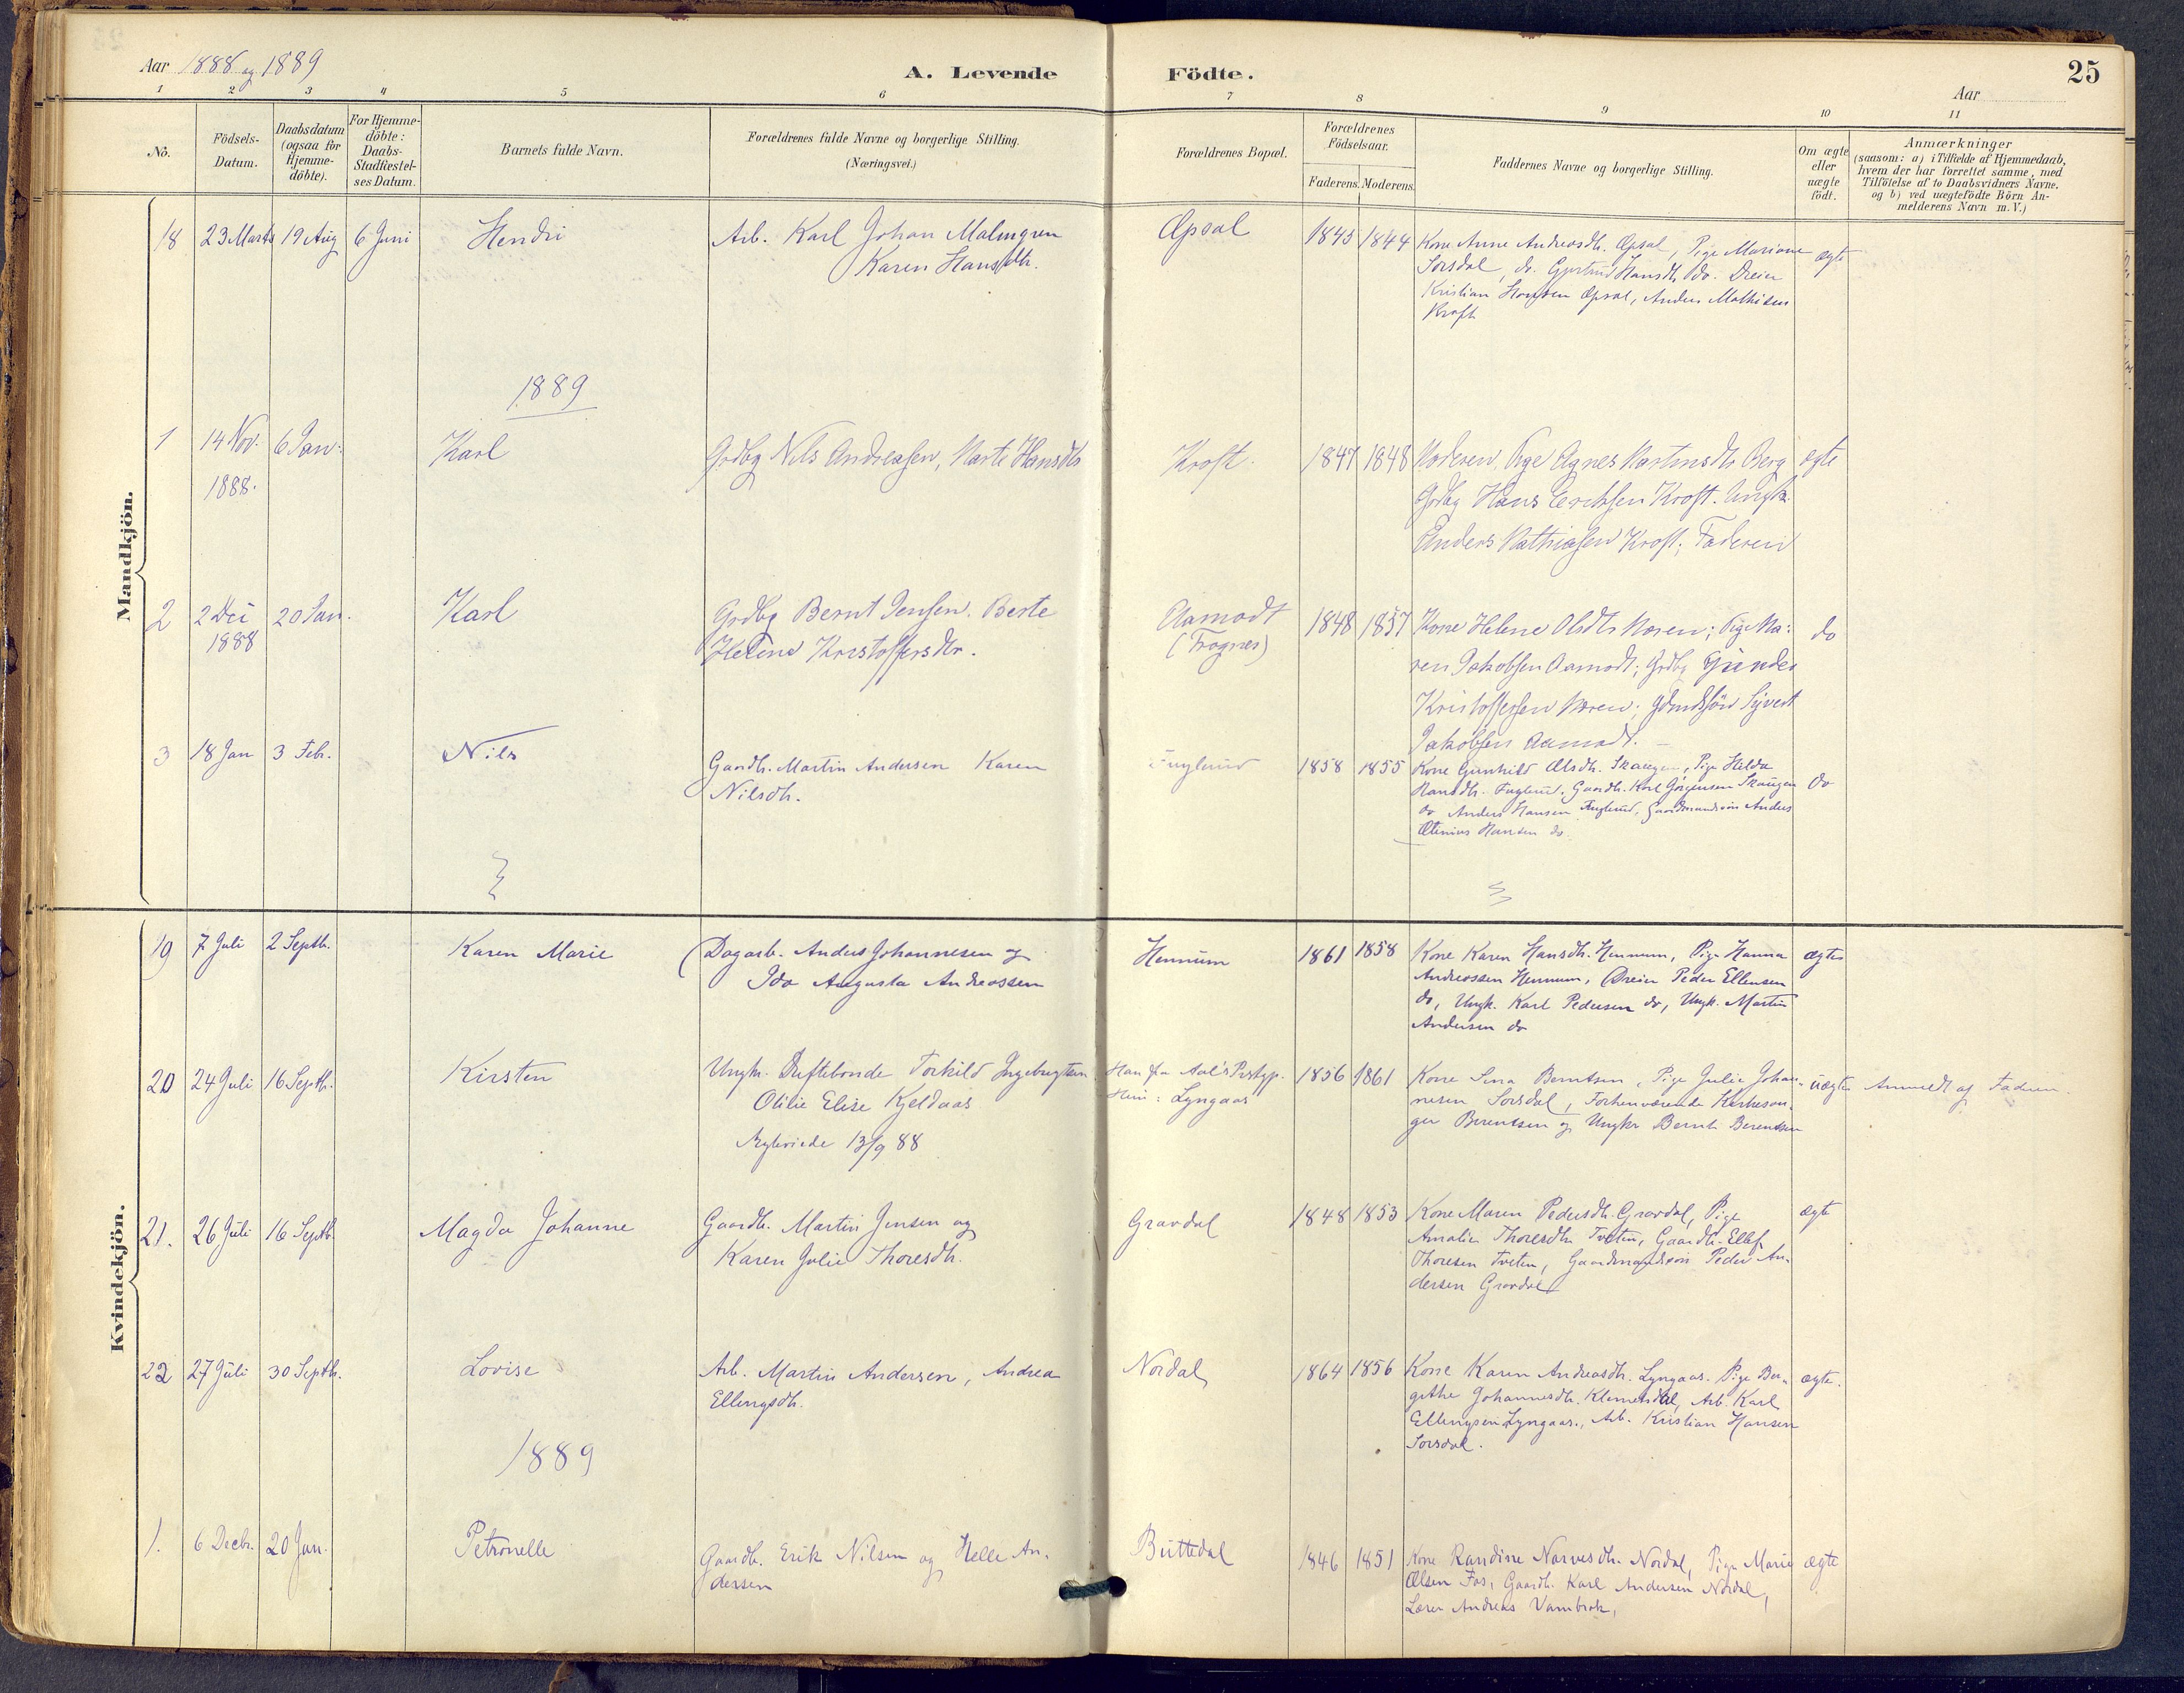 Aar 1888 og 1889
A. Levende Födte.
25
Aar
1 2 3 4 5 6 7 8 9 10 11
No.
Födsels-
Datum.
Daabsdatum
(ogsaa for
Hjemme-
döbte).
For Hjemme-
döbte:
Daabs-
Stadfæstel-
ses Datum.
Barnets fulde Navn.
Forældrenes fulde Navne og borgerlige Stilling.
(Næringsvei.)
Forældrenes Bopæl.
Forældrenes
Födselsaar.
Faderens. Moderens.
Faddernes Navne og borgerlige Stilling.
Om ægte
eller
uægte
födt.
Anmærkninger
(saasom: a) i Tilfælde af Hjemmedaab,
hvem der har forrettet samme, med
Tilföielse af to Daabsvidners Navne.
og b) ved uægtefödte Börn An-
melderens Navn m. V.)
Mandkjön.
18 23 Marts 19 Aug 6 Juni Hendri
Arb. Karl Johan Malmgren
Karen Hansdtr.
Opsal 1845 1844
Kone Anne Andreasdtr. Opsal, Pige Mariane
Sorsdal, do. Gjertrud Hansdtr do. Dreier
Kristian Hansen Opsal, Anders Mathisen
Kroft
ægte
1889
1 14 Nov. 1888. 6 Jan: Karl
Grdbg Nils Andreasen, Marte Hansdtr
Kroft. 1847 1848
Moderen, Pige Agnes Martinsdtr Berg
Grdbg Hans Erichsen Kroft. Ungk.
Anders Mathiasen Kroft; Faderen
ægte
2 2 Dec 1888 20 Jan. Karl
Grdbg Bernt Jensen. Berte
Helene Kristoffersdtr.
Aamodt
(Frognes)
1848 1857
Kone Helene Olsdtr Moren; Pige Ma:
ren Jakobsen Aamodt; Grdbg Gunder
Kristoffersen Moren; Gdmdsön Syvert
Jakobsen Aamodt.
do
3 18 Jan 3 Febr. Nils
Gaardb. Martin Andersen Karen
Nilsdtr.
Fuglerud 1858 1855
Kone Gunhild Olsdtr. Skaugen, Pige Hilda
Hansdtr. Fuglerud. Gaardb. Karl Jörgensen Skaugen
do Anders Hansen Fuglerud, Gaardmandssön Anders
Otenius Hansen do.
do
Kvindekjön.
19 7 Juli 2 Septb. Karen Marie
Dagarb. Anders Johannesen og
Ida Augusta Andreassen
Hennum 1861 1858
Kone Karen Hansdtr. Hennum, Pige Hanna
Andreassen Hennum, Dreier Peder Ellensen
do, Ungk. Karl Pedersen do, Ungk. Martin
Andersen do
ægte
20 24 Juli 16 Septb. Kirsten
Ungkr. Torkild Ingebrigtsen
Otilie Elise Kjeldaas
Ægteviede 13/9 88
Han fra Aal's Prstgj.
Hun: Lyngaas
1856 1861
Kone Sina Berntsen, Pige Julie Johan-
nesen Sorsdal, Forhenværende Kirkesan-
ger Berentsen og Ungkr Bernt Berentsen
uægte Anmeldt af Faderen
21. 26 Juli 16 Septb. Magda Johanne
Gaardb. Martin Jensen og
Karen Julie Thoresdtr.
Gravdal 1848 1853
Kone Maren Pedersdtr. Gravdal, Pige
Amalie Thoresdtr Tveten, Gaardb. Ellef
Thoresen Tveten, Gaardmandssön Peder An-
dersen Gravdal
ægte
22 27 Juli 30 Septb. Lovise
Arb. Martin Andersen, Andrea
Ellingsdtr.
Nordal 1864 1856
Kone Karen Andreasdtr. Lyngaas. Pige Ber-
githe Johannesdtr. Klemetsdal, Arb. Karl
Ellingsen Lyngaas., Arb. Kristian Hansen
Sorsdal.
ægte.
1889
1. 6 Decbr. 20 Jan. Petronelle
Gaardb. Erik Nilsen og Helle An-
dersen
Buttedal 1846 1851
Kone Randine Narvesdtr. Nordal, Pige Marie
Olsen Fos, Gaardb. Karl Andersen Nordal,
Lærer Andreas Vambrok,
ægte